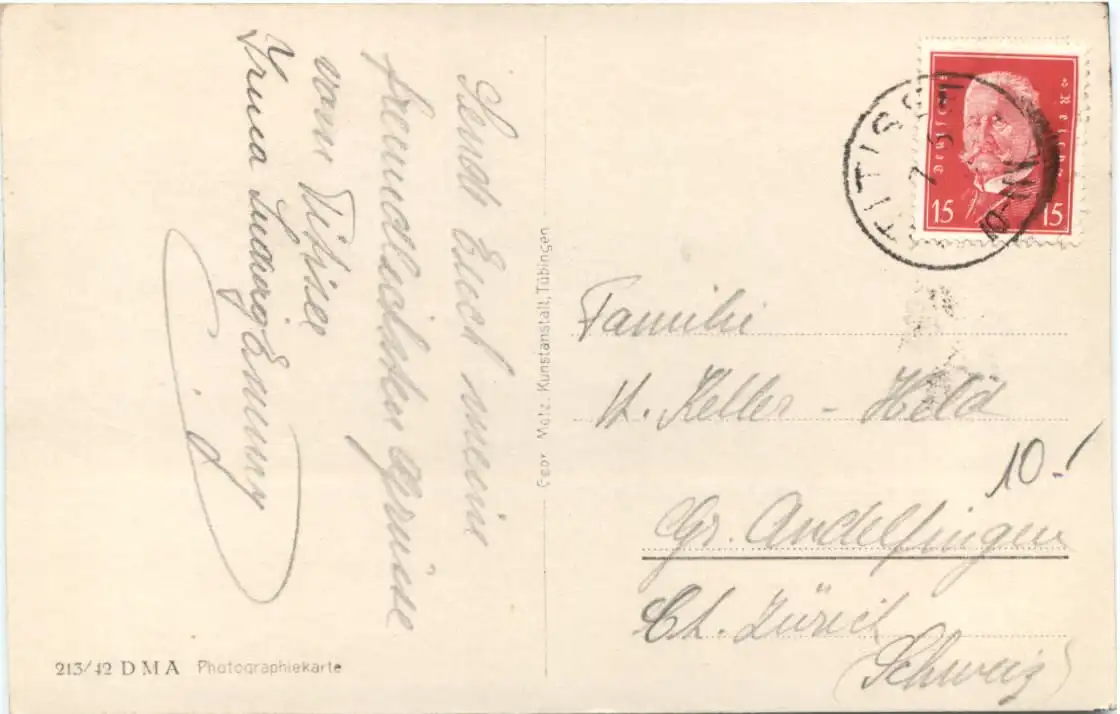 Sende Euch meine
freundlichsten Grüsse
vom Titisee
Irma
Gebr. Metz, Kunstanstalt, Tübingen
213/42 D M A Photographiekarte
Deutsches Reich
15 15
TITISEE
Familie
H. Keller - Held
10.-
Gr. Andelfingen
Ct. Zürich
(Schweiz)